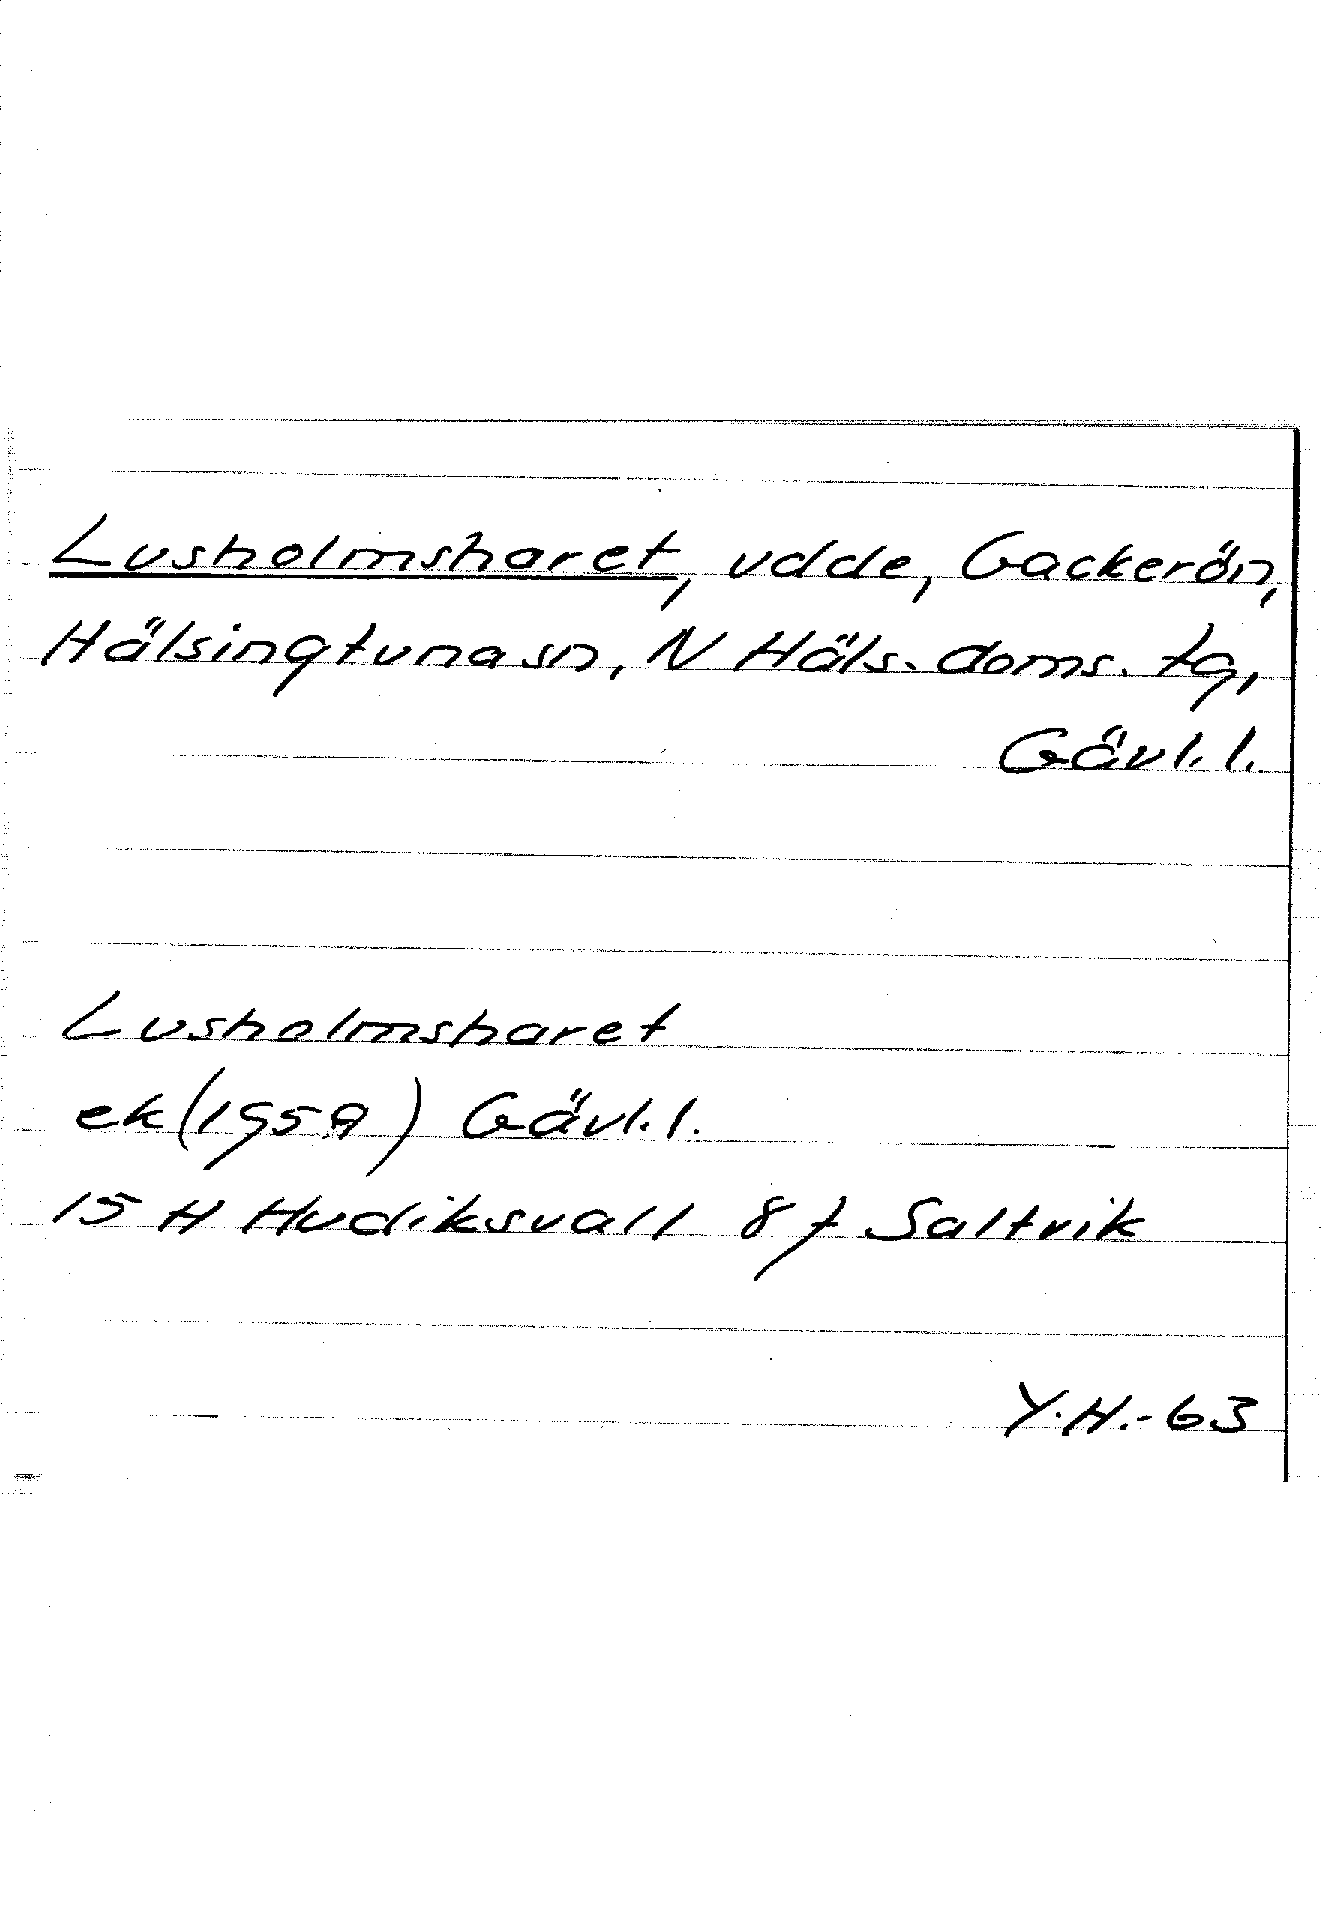 Lusholmsharet, udde, Gackerön,
Hälsingtuna sn, N Häls. doms. tg,
Gävl. l.
Lusholmsharet
ek (1959) Gävl. l.
15 H Hudiksvall 8 f Saltvik
Y.H.-63